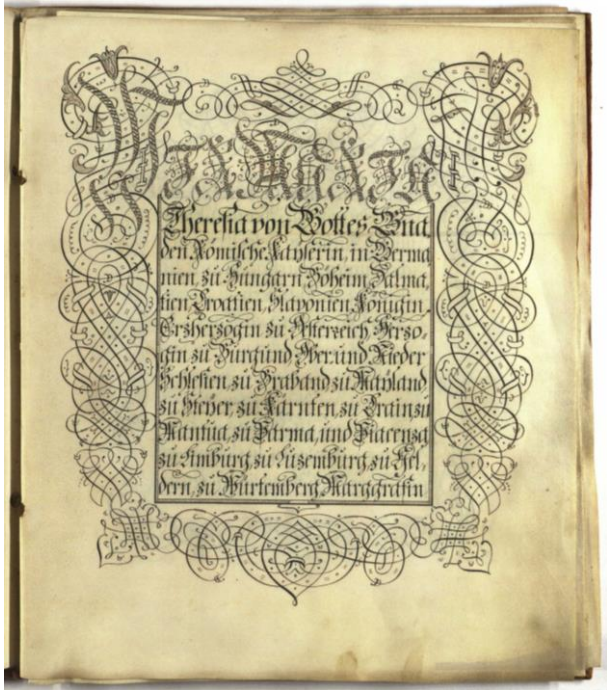 WIR MARIA
Theresia von Gottes Gna,
den Römische Kayserin, in Germa
nien, zu Hungarn, Böheim, Dalma,
tien, Croatien, Slavonien, Königin,
Erzherzogin zu Österreich, Herzo-
gin zu Burgund, Ober, und Nieder
Schlesien, zu Braband, zu Mayland,
zu Steyer, zu Kärnten, zu Crain, zu
Mantua, zu Parma, und Piacenza
zu Limburg, zu Luzemburg, zu Gel,
dern, zu Würtemberg, Marggräfin